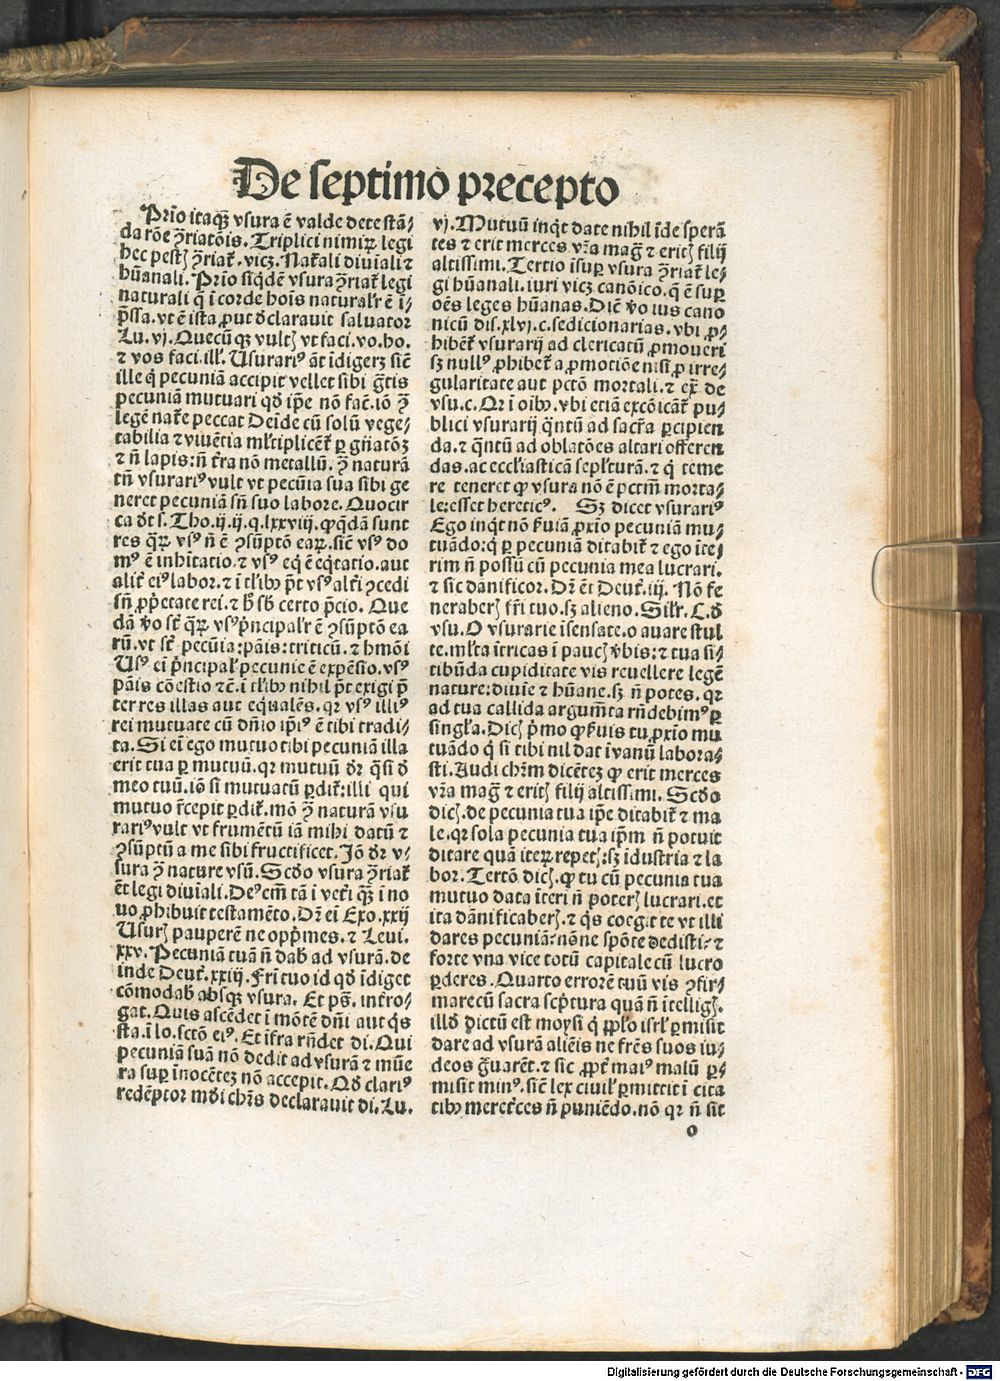 De septimo precepto
Prīo itaqꝫ vsura ē valde detestā⸗
da rōe ꝯriatōis. Triplici nimiꝝ legi
hec pestꝭ ꝯriat̄. vicꝫ. Nat̄ali diuiali ⁊
hūanali. Prīo siq̇dē vsura ꝯriat̄ legi
naturali q̄ ī corde hoīs natural'r ē ī⸗
p̄ssa. vt ē ista ꝓut d̄clarauit saluator
Lu. vj. Quecūqꝫ vultꝭ vt faci. vo. ho.
⁊ vos faci. ill'. Usurariꝰ āt īdigerꝫ sic̄
ille q̇ pecuniā accipit vellet sibi gr̄tis
pecuniā mutuari qd̄ ip̄e nō fac̄. iō ꝯ
legē nat̄e peccat Deīde cū solū vege⸗
tabilia ⁊ viuētia ml'tiplicēt̄ ꝑ gn̄atōꝫ
⁊ n̄ lapis: n̄ t̄ra nō metallū. ꝯ naturā
tn̄ vsurariꝰ vult vt pecūia sua sibi ge
neret pecuniā sn̄ suo labore. Quocir
ca d̄t s. Tho. ij. ij. q. lxxviij. ꝙ q̄dā sunt
res q̄ꝝ vsꝰ n̄ ē ꝯsūptō eaꝝ. sic̄ vsꝰ do
mꝰ ē inhītatio. ⁊ vsꝰ eq̇ ē eq̇tatio. aut
alit̄ eiꝰ labor. ⁊ ī tl'ibꝫ p̄t vsꝰ alt̄i ꝯcedi
sn̄ ꝓp̄etate rei. ⁊ h̄ sb̄ certo p̄cio. Que
dā v̄o st̄ q̄ꝝ vsꝰ p̄ncipal'r ē ꝯsūptō ea
rū. vt st̄ pecūia: pāis: triticū. ⁊ hmōi
Usꝰ eī p̄ncipal' pecunie ē expēsio. vsꝰ
pāis cōestio ⁊c̄. ī tl'ibꝫ nihil p̄t exigi p̄
ter res illas aut equalēs. qꝛ vsꝰ illiꝰ
rei mutuate cū dn̄io ip̄iꝰ ē tibi tradi⸗
ta. Si eī ego mutuo tibi pecuniā illa
erit tua ꝑ mutuū. qꝛ mutuū dꝛ q̄si d̄
meo tuū. iō si mutuatū ꝑdit̄: illi qui
mutuo r̄cepit ꝑdit̄. mō ꝯ naturā vsu
rariꝰ vult vt frumētū iā mihi datū ⁊
ꝯsūptū a me sibi fructificet. Iō dꝛ v⸗
sura ꝯ nature vsū. Scd̄o vsura ꝯriat̄
ēt legi diuiali. Deꝰ em̄ tā ī vet̄i qꝫ ī no
uo ꝓhibuit testamēto. Dꝛ eī Exo. xxij
Usurꝭ pauperē ne opp̄mes. ⁊ Leui.
xxv. Pecuniā tuā n̄ dab̄ ad vsurā. de
inde Deut̄. xxiij. Fr̄i tuo id qd̄ īdiget
cōmodab̄ absqꝫ vsura. Et ps̄. int̄ro⸗
gat. Quis ascēdet ī mōtē dn̄i aut q̇s
sta. ī lo. sctō eiꝰ. Et īfra rn̄det di. Qui
pecuniā suā nō dedit ad vsurā ⁊ mūe
ra suꝑ īnocētez nō accepit. Qd̄ clariꝰ
redēptor mūdi chr̄s declarauit di. Lu.
vj. Mutuū inq̇t date nihil īde sperā
tes ⁊ erit merces vr̄a mag̈ ⁊ eritꝭ filij
altissimi. Tertio īsuꝑ vsura ꝯriat̄ le⸗
gi hūanali. iuri vicꝫ canōico. q̄ ē suꝑ
oēs leges hūanas. Dic̄ v̄o ius cano
nicū dis. xlvj. c. sedicionarias. vbi ꝓ⸗
hibēt̄ vsurarij ad clericatū ꝓmoueri
sꝫ nullꝰ ꝓhibet̄ a ꝓmotiōe nisi ꝓ irre⸗
gularitate aut pctō mortali. ⁊ ex̄ de
vsu. c. Qꝛ ī oībꝫ. vbi etiā excōicāt̄ pu⸗
blici vsurarij q̄ntū ad sac̄ra ꝑcipien
da. ⁊ q̄ntū ad oblatōes altari offeren
das. ac eccl'iasticā sepl'turā. ⁊ q̇ teme
re teneret ꝙ vsura nō ē pctm̄ morta⸗
le: esset hereticꝰ. Sꝫ dicet vsurariꝰ
Ego inq̇t nō ẜuiā ꝓxio pecuniā mu⸗
tuādo: q̇ ꝑ pecuniā ditabit̄ ⁊ ego īte⸗
rim n̄ possū cū pecunia mea lucrari.
⁊ sic dānificor. Dꝛ ēt Deut̄. iij. Nō fe
neraberꝭ fr̄i tuo. sꝫ alieno. Sil'r. C. d̄
vsu. O vsurarie īsensate. o auare stul
te. ml'ta ītricas ī paucꝭ v̄bis: ⁊ tua si⸗
tibūda cupiditate vis reuellere legē
nature: diuīe ⁊ hūane. sꝫ n̄ potes. qꝛ
ad tua callida argum̄ta rn̄debimꝰ ꝑ
singl'a. Dicꝭ p̄mo ꝙ ẜuis tu ꝓxio mu
tuādo q̇ si tibi nil dat īvanū laboras⸗
ti. Audi chr̄m dicētez ꝙ erit merces
vr̄a mag̈ ⁊ eritꝭ filij altissimi. Scd̄o
dicꝭ. de pecunia tua ip̄e ditabit̄ ⁊ ma
le. qꝛ sola pecunia tua ip̄m n̄ potuit
ditare quā iteꝝ repetꝭ: sꝫ īdustria ⁊ la
bor. Tertō dicꝭ. ꝙ tu cū pecunia tua
mutuo data īteri n̄ poterꝭ lucrari. et
ita dānificaberꝭ. ⁊ q̇s coegit te vt illi
dares pecuniā: nōne spōte dedisti: ⁊
forte vna vice totū capitale cū lucro
ꝑderes. Quarto errorē tuū vis ꝯfir⸗
mare cū sacra sc̄ptura quā n̄ ītelligꝭ.
illd̄ dictū est moysi q̇ ppl'o isrl' ꝑmisit
dare ad vsurā aliēis ne fr̄es suos iu⸗
deos g̈uarēt. ⁊ sic ꝓpt̄ maiꝰ malū ꝑ⸗
misit minꝰ. sic̄ lex ciuil' ꝑmittit ī cita
tibꝫ meret̄ces n̄ puniēdo. nō qꝛ n̄ sit
o
Digitalisierung gefördert durch die Deutsche Forschungsgemeinschaft - DFG